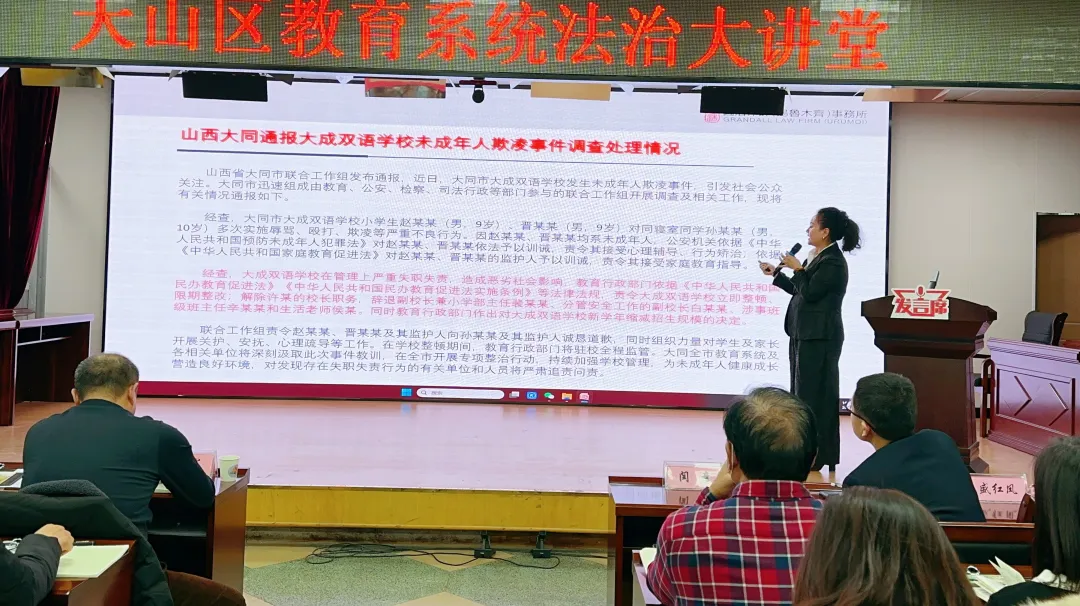 天山区教育系统法治大讲堂
鲁木齐)事務所
GRANDALL LAW FIRM (URUMQI)
山西大同通报大成双语学校未成年人欺凌事件调查处理情况
山西省大同市联合工作组发布通报，近日，大同市大成双语学校发生未成年人欺凌事件，引发社会公众
关注。大同市迅速组成由教育、公安、检察、司法行政等部门参与的联合工作组开展调查及相关工作，现将
有关情况通报如下。
经查，大同市大成双语学校小学生赵某某（男，9岁）、晋某某（男，9岁）对同寝室同学孙某某（男，
10岁）多次实施辱骂、殴打、欺凌等严重不良行为。因赵某某、晋某某均系未成年人，公安机关依据《中华
人民共和国预防未成年人犯罪法》对赵某某、晋某某依法予以训诫，责令其接受心理辅导、行为矫治；依据
《中华人民共和国家庭教育促进法》对赵某某、晋某某的监护人予以训诫，责令其接受家庭教育指导。
经查，大成双语学校在管理上严重失职失责，造成恶劣社会影响，教育行政部门依据《中华人民共和国
民办教育促进法》《中华人民共和国民办教育促进法实施条例》等法律法规，责令大成双语学校立即整顿、
限期整改；解除许某的校长职务，辞退副校长兼小学部主任褚某某、分管安全工作的副校长白某某、涉事班
级班主任辛某某和生活老师侯某。同时教育行政部门作出对大成双语学校新学年缩减招生规模的决定。
联合工作组责令赵某某、晋某某及其监护人向孙某某及其监护人诚恳道歉，同时组织力量对学生及家长
开展关护、安抚、心理疏导等工作。在学校整顿期间，教育行政部门将驻校全程监管。大同全市教育系统及
各相关单位将深刻汲取此次事件教训，在全市开展专项整治行动，持续加强学校管理，为未成年人健康成长
营造良好环境，对发现存在失职失责行为的有关单位和人员将严肃追责问责。
搜索
发言席
盛红凤